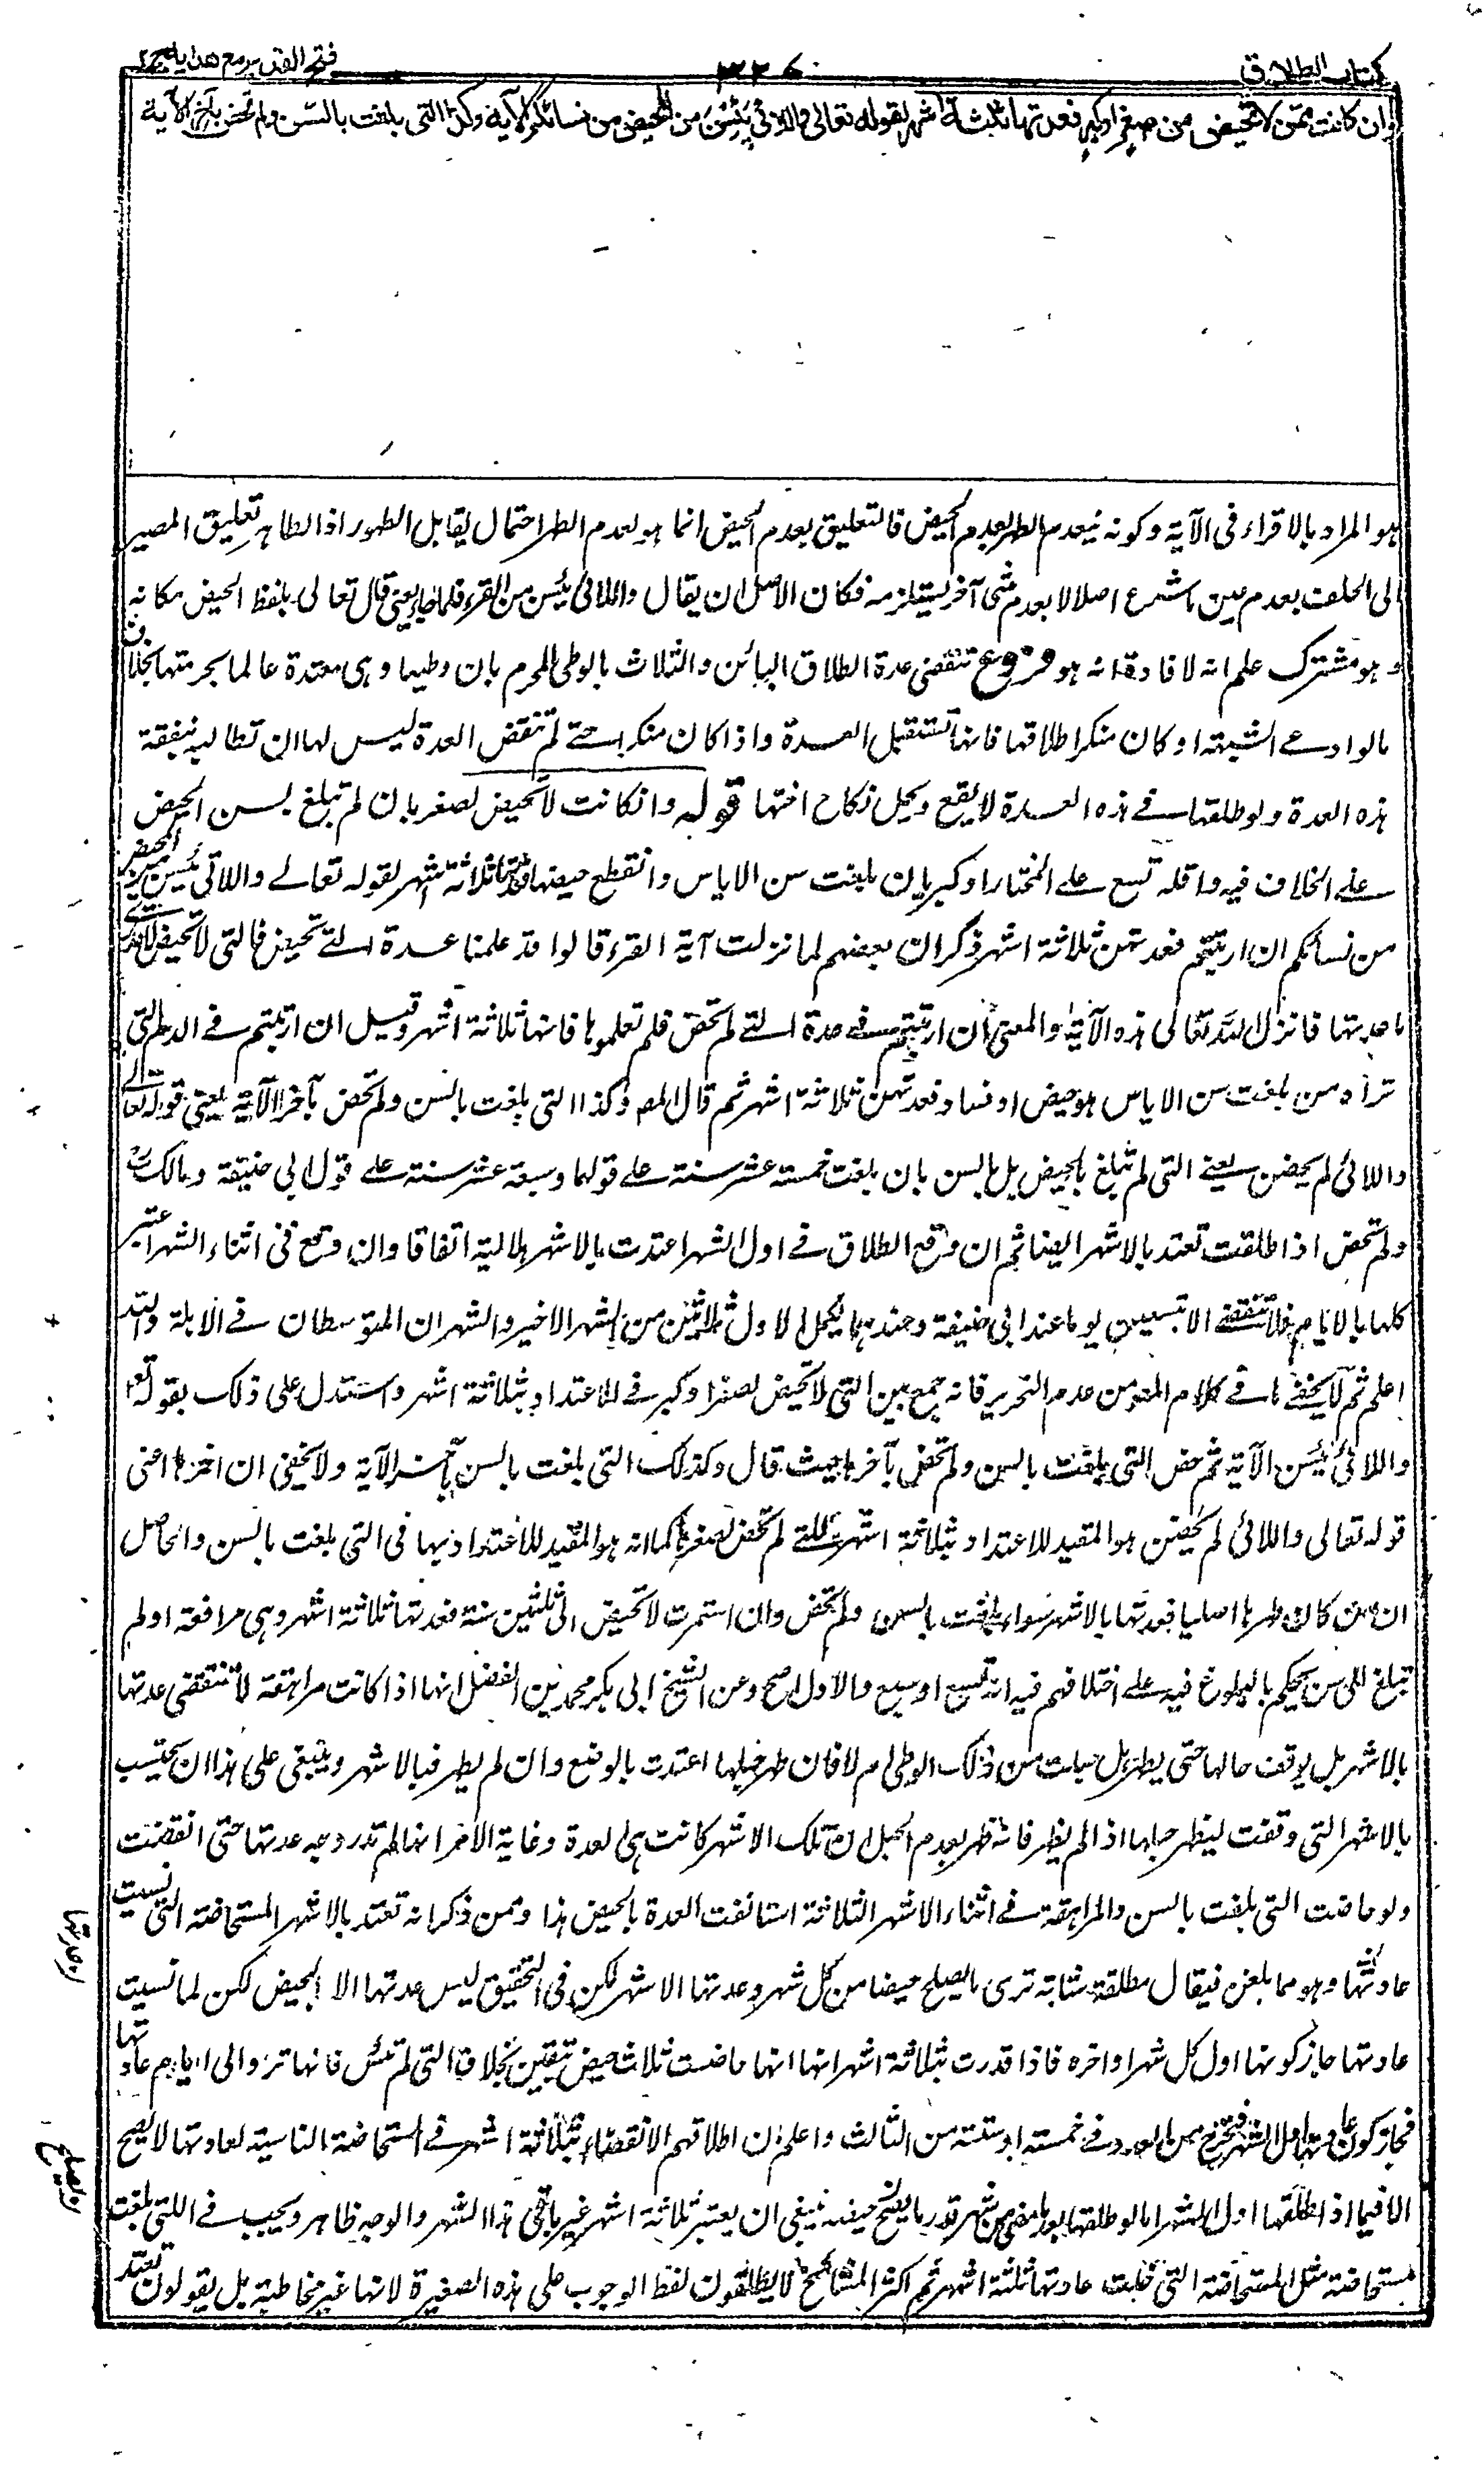 كتاب الطلاق
فتح القدير مع هدايه ج ٢
وان كانت ممن لا تحيض من صغر او كبر فعدتها ثلثة اشهر لقوله تعالى واللائي يئسن من المحيض من نسائكم الآية وكذا التي بلغت بالسن ولم تحض بآخر الآية
هو المراد بالاقراء فى الآية وكونه بعدم الطهر بعدم الحيض فالتعليق بعدم الحيض انما هو لعدم الطهر احتمال يقابل الظهور اذ الظاهر تعليق المصير
الى الخلف بعدم عين ما شرع اصلا لا بعدم شئ آخر يستلزمه فكان الاصل ان يقال واللائى يئسن من القرء فلما قال تعالى بلفظ الحيض مكانه
وهو مشترك علم انه لافادة انه هو فروع تنقضى عدة الطلاق البائن والثلاث بالوطى المحرم بان وطيها وهى معتدة عالما بحرمتها بخلاف
ما لو ادعى الشبهة او كان منكرا طلاقها فانها تستقبل العدة واذا كان منكرا حتے لم تنقض العدة ليس لها ان تطالبه بنفقة
هذه العدة ولو طلقها فے هذه العدة لا يقع ويحل نكاح اختها قوله وان كانت لا تحيض لصغر بان لم تبلغ بسن الحيض
علے الخلاف فيه واقله تسع علے المختار او كبر بان بلغت سن الاياس وانقطع حيضها فعدتها ثلاثة اشهر لقوله تعالے واللائى يئسن من المحيض
من نسائكم ان ارتبتم فعدتهن ثلاثة اشهر ذكر ان بعضهم لما نزلت آية القرء قالوا قد علمنا عدة التے تحيض فالتى لا تحيض لا ندرى
ما عدتها فانزل الله تعالى هذه الآية والمعنى ان ارتبتم فے عدة التے لم تحض فلم تعلموها فانها ثلاثة اشهر وقيل ان ارتبتم فے الدم التى
تراه من بلغت سن الاياس هو حيض او فساد فعدتهن ثلاثة اشهر ثم قال المص وكذا التى بلغت بالسن ولم تحض بآخر الآية يعنى قوله تعالے
واللائى لم يحضن يعنے التى لم تبلغ بالحيض بل بالسن بان بلغت خمسة عشر سنة علے قولهما وسبعة عشر سنة علے قول ابى حنيفة ومالك رح
ولم تحض اذا طلقت تعتد بالاشهر ايضا ثم ان وقع الطلاق فے اول الشهر اعتدت بالاشهر هلالية اتفاقا وان وقع فى اثناء الشهر اعتبر
كلها بالايام فلا تنقضے الا بتسعين يوما عند ابى حنيفة وعندهما يكمل الاول ثلاثين من الشهر الاخير والشهران المتوسطان فے الاهلة والله
اعلم ثم لا يخفے ما فے كلام المص من عدم التحرير فانه جمع بين التى لا تحيض لصغر او كبر فے الاعتداد بثلاثة اشهر واستدل على ذلك بقوله تعالى
واللائى يئسن الآية ثم خص التى بلغت بالسن ولم تحض بآخرها حيث قال وكذلك التى بلغت بالسن بآخر الآية ولا يخفى ان آخرها اعنى
قوله تعالى واللائى لم يحضن هو المقيد للاعتداد بثلاثة اشهر للتے لم تحض لصغرها كما انه هو المقيد للاعتداد بها فى التى بلغت بالسن والحاصل
ان من كان طهرها اصليا فعدتها بالاشهر سواء بلغت بالسن ولم تحض وان استمرت لا تحيض الى ثلثين سنة فعدتها ثلاثة اشهر وهى مراهقة او لم
تبلغ الى سن يحكم بالبلوغ فيه علے اختلافهم فيه انه تسع او سبع والاول اصح وعن الشيخ ابى بكر محمد بن الفضل انها اذا كانت مراهقة لا تنقضى عدتها
بالاشهر بل يوقف حالها حتى يظهر هل حبلت من ذلك الوطى ام لا فان ظهر حبلها اعتدت بالوضع وان لم يظهر فبالاشهر وينبغى على هذا ان يحتسب
بالاشهر التى وقفت ليظهر حبلها اذا لم يظهر فانه ظهر بعدم الحبل ان تلك الاشهر كانت هى العدة وغاية الامر انها لم تدر وجه عدتها حتى انقضت
ولو حاضت التى بلغت بالسن والمراهقة فے اثناء الاشهر الثلاثة استانفت العدة بالحيض هذا وممن ذكر انه تعتد بالاشهر المستحاضة التى نسيت
عادتها وهو مما يلغز فيقال مطلقة شابة ترى ما يصلح حيضا من كل شهر وعدتها الاشهر لكن فى التحقيق ليس عدتها الا الحيض لكن لما نسيت
عادتها جاز كونها اول كل شهر او آخره فاذا قدرت بثلاثة اشهر انها حاضت ثلاث حيض بيقين بخلاف التى لم تنس فانها ترد الى ايام عادتها
فجاز كون عادتها اول الشهر فتخرج من العدة فے خمسة او ستة من الثالث واعلم ان اطلاقهم الانقضاء بثلاثة اشهر فے المستحاضة الناسية لعادتها لا يصح
الا فيما اذا طلقها اول الشهر اما لو طلقها بعد ما مضى من الشهر قدر ما يصح حيضه ينبغى ان يعتبر ثلاثة اشهر غير باقى هذا الشهر والوجه ظاهر ويجب فے اللتى بلغت
مستحاضة مثل المستحاضة التى نسيت عادتها ثلثة اشهر ثم اكثر المشائخ لا يطلقون لفظ الوجوب على هذه الصغيرة لانها غير مخاطبة بل يقولون تعتد